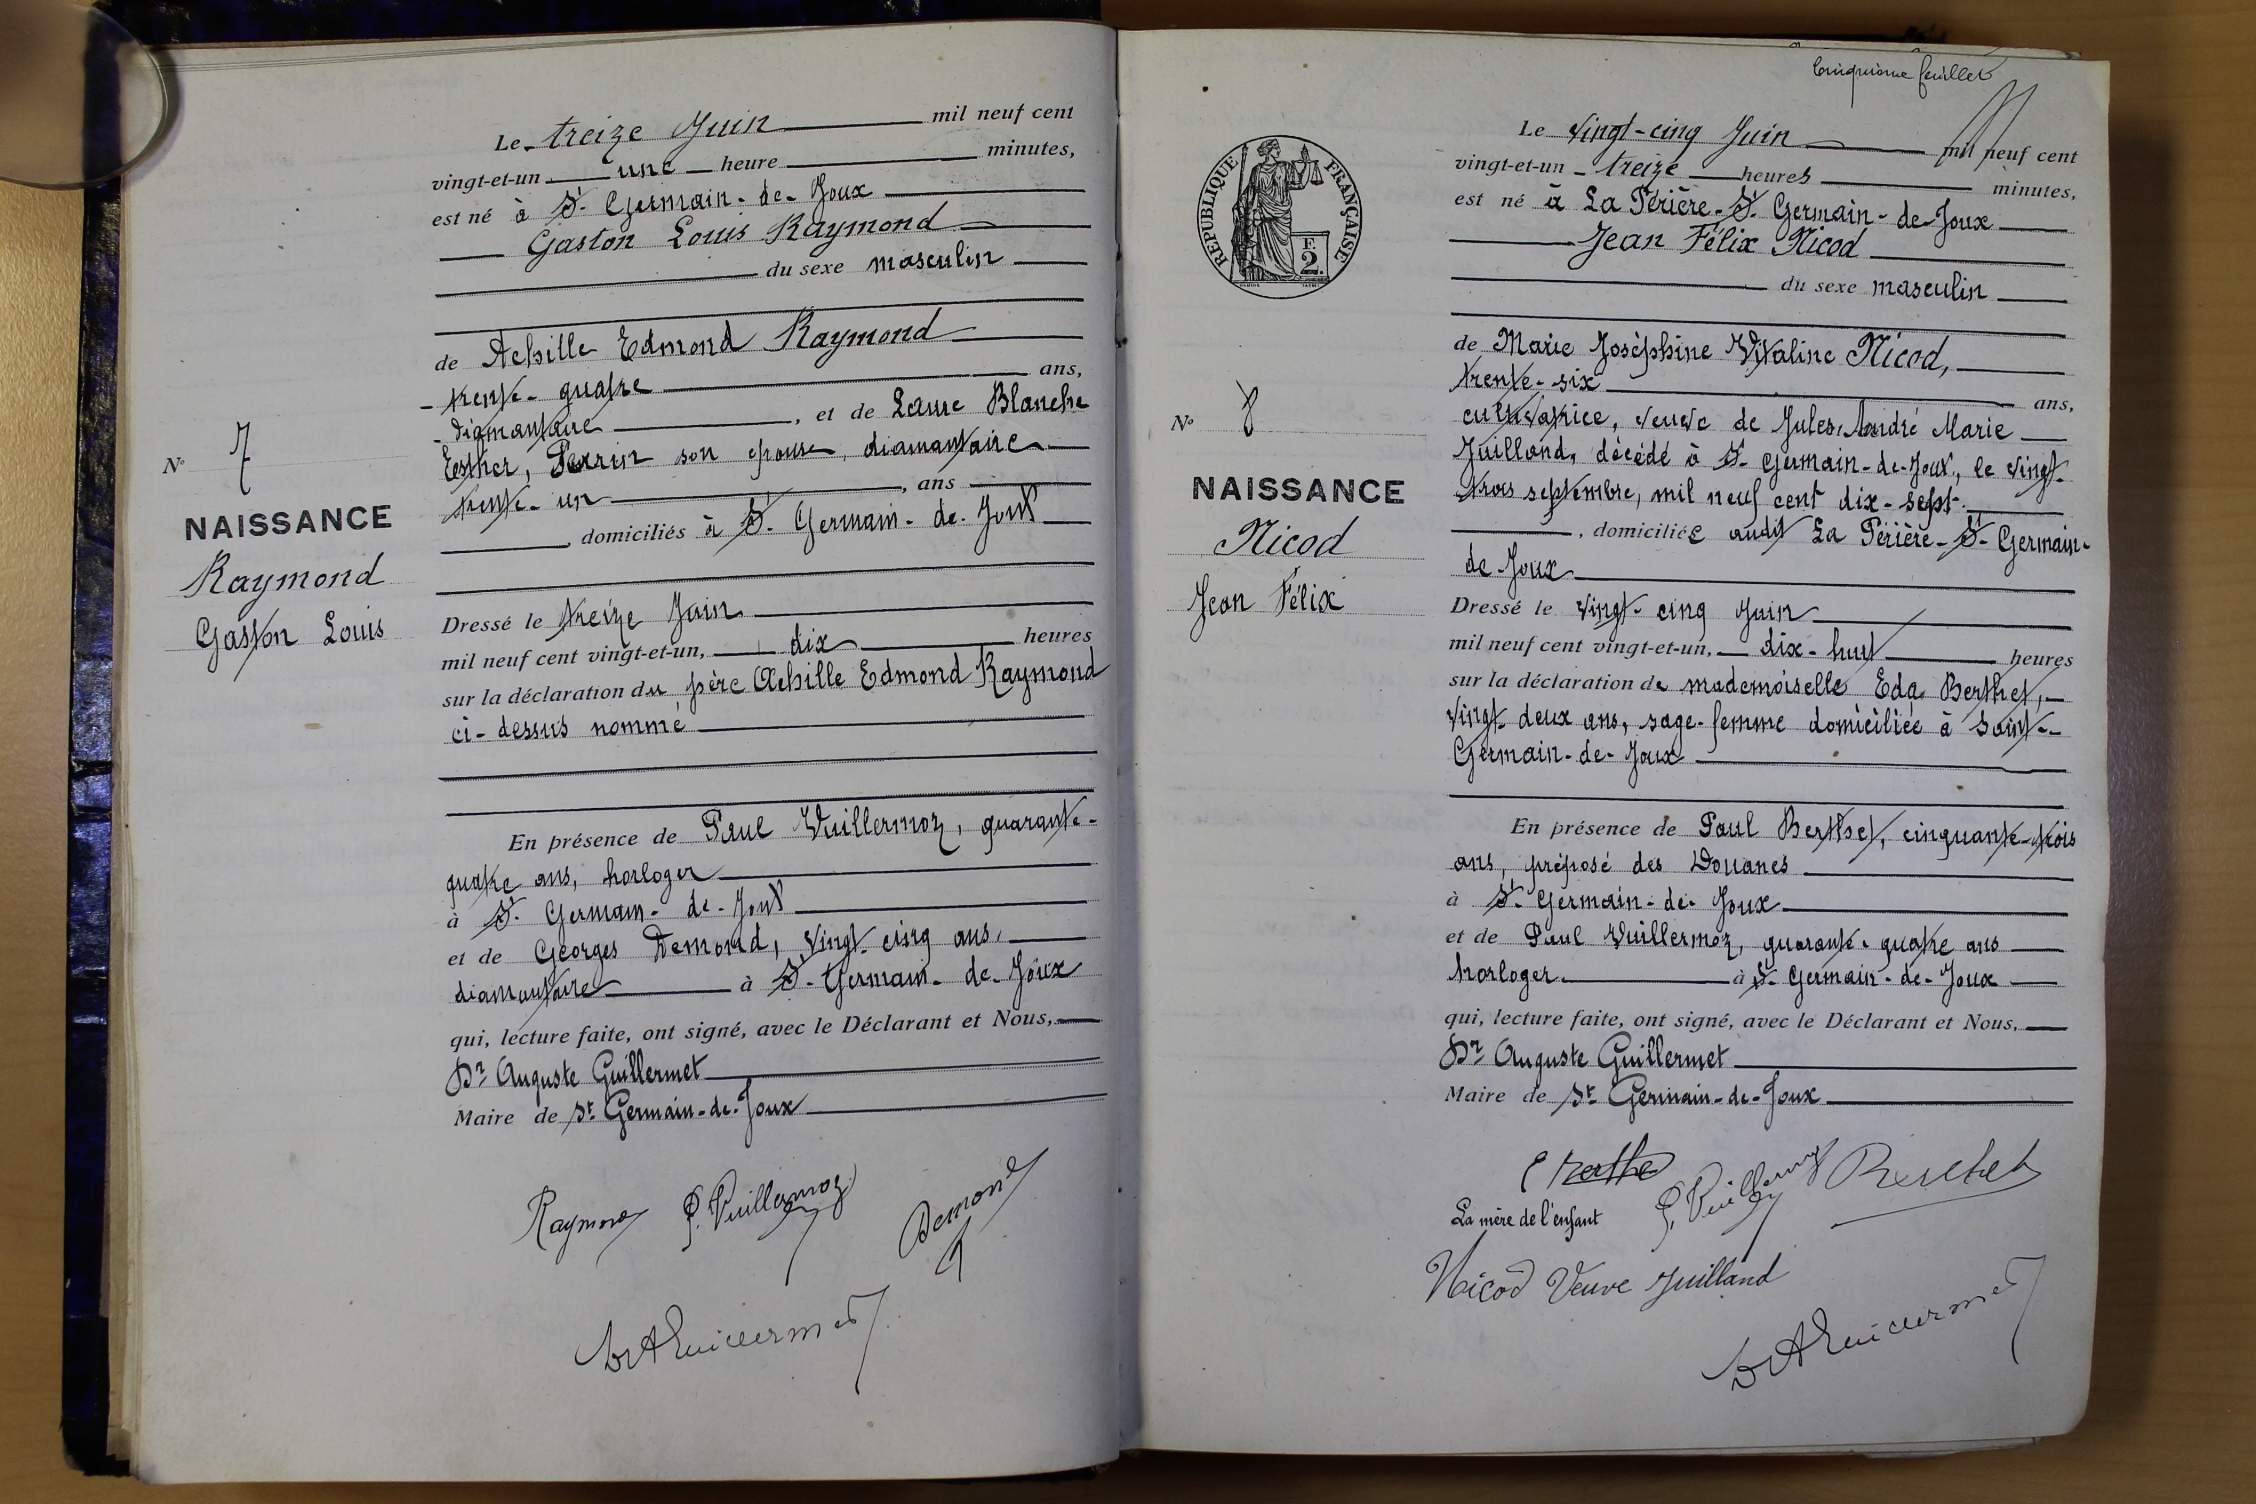 Le treize Juin mil neuf cent
vingt-et-un une heure minutes,
est né à St. Germain-de-Joux
Gaston Louis Raymond
du sexe masculin
de Achille Edmond Raymond
trente-quatre ans,
diamantaire, et de Laure Blanche
Esther, Perrin son épouse, diamantaire
trente-un, ans
domiciliés à St. Germain-de-Joux
Dressé le treize Juin
mil neuf cent vingt-et-un, dix heures
sur la déclaration du père Achille Edmond Raymond
ci-dessus nommé
En présence de Paul Vuillermoz, quarante-
quatre ans, horloger
à St. Germain-de-Joux
et de Georges Demond, vingt-cinq ans,
diamantaire à St. Germain-de-Joux
qui, lecture faite, ont signé, avec le Déclarant et Nous,
Dr Auguste Guillermet
Maire de St. Germain-de-Joux
No 7
NAISSANCE
Raymond
Gaston Louis
Raymond P. Vuillermoz Demond
Dr A Guillermet
Cinquième feuillet
RÉPUBLIQUE FRANÇAISE
F.
2.
Le vingt-cinq Juin mil neuf cent
vingt-et-un treize heures minutes,
est né à La Périère-St. Germain-de-Joux
Jean Félix Nicod
du sexe masculin
de Marie Joséphine Vitaline Nicod,
trente-six ans,
cultivatrice, veuve de Jules, André Marie
Juilland, décédé à St. Germain-de-Joux, le vingt-
trois septembre, mil neuf cent dix-sept.
, domiciliée audit La Périère-St. Germain-
de-Joux
Dressé le vingt-cinq Juin
mil neuf cent vingt-et-un, dix-huit heures
sur la déclaration de mademoiselle Eda Berthet,
vingt-deux ans, sage-femme domiciliée à Saint-
Germain-de-Joux
En présence de Paul Berthet, cinquante-trois
ans, préposé des Douanes
à St. Germain-de-Joux
et de Paul Vuillermoz, quarante-quatre ans
horloger à St. Germain-de-Joux
qui, lecture faite, ont signé, avec le Déclarant et Nous,
Dr Auguste Guillermet
Maire de St. Germain-de-Joux
No 8
NAISSANCE
Nicod
Jean Félix
P. Vuillermoz Berthet
La mère de l'enfant
Nicod Veuve Juilland
Dr A Guillermet